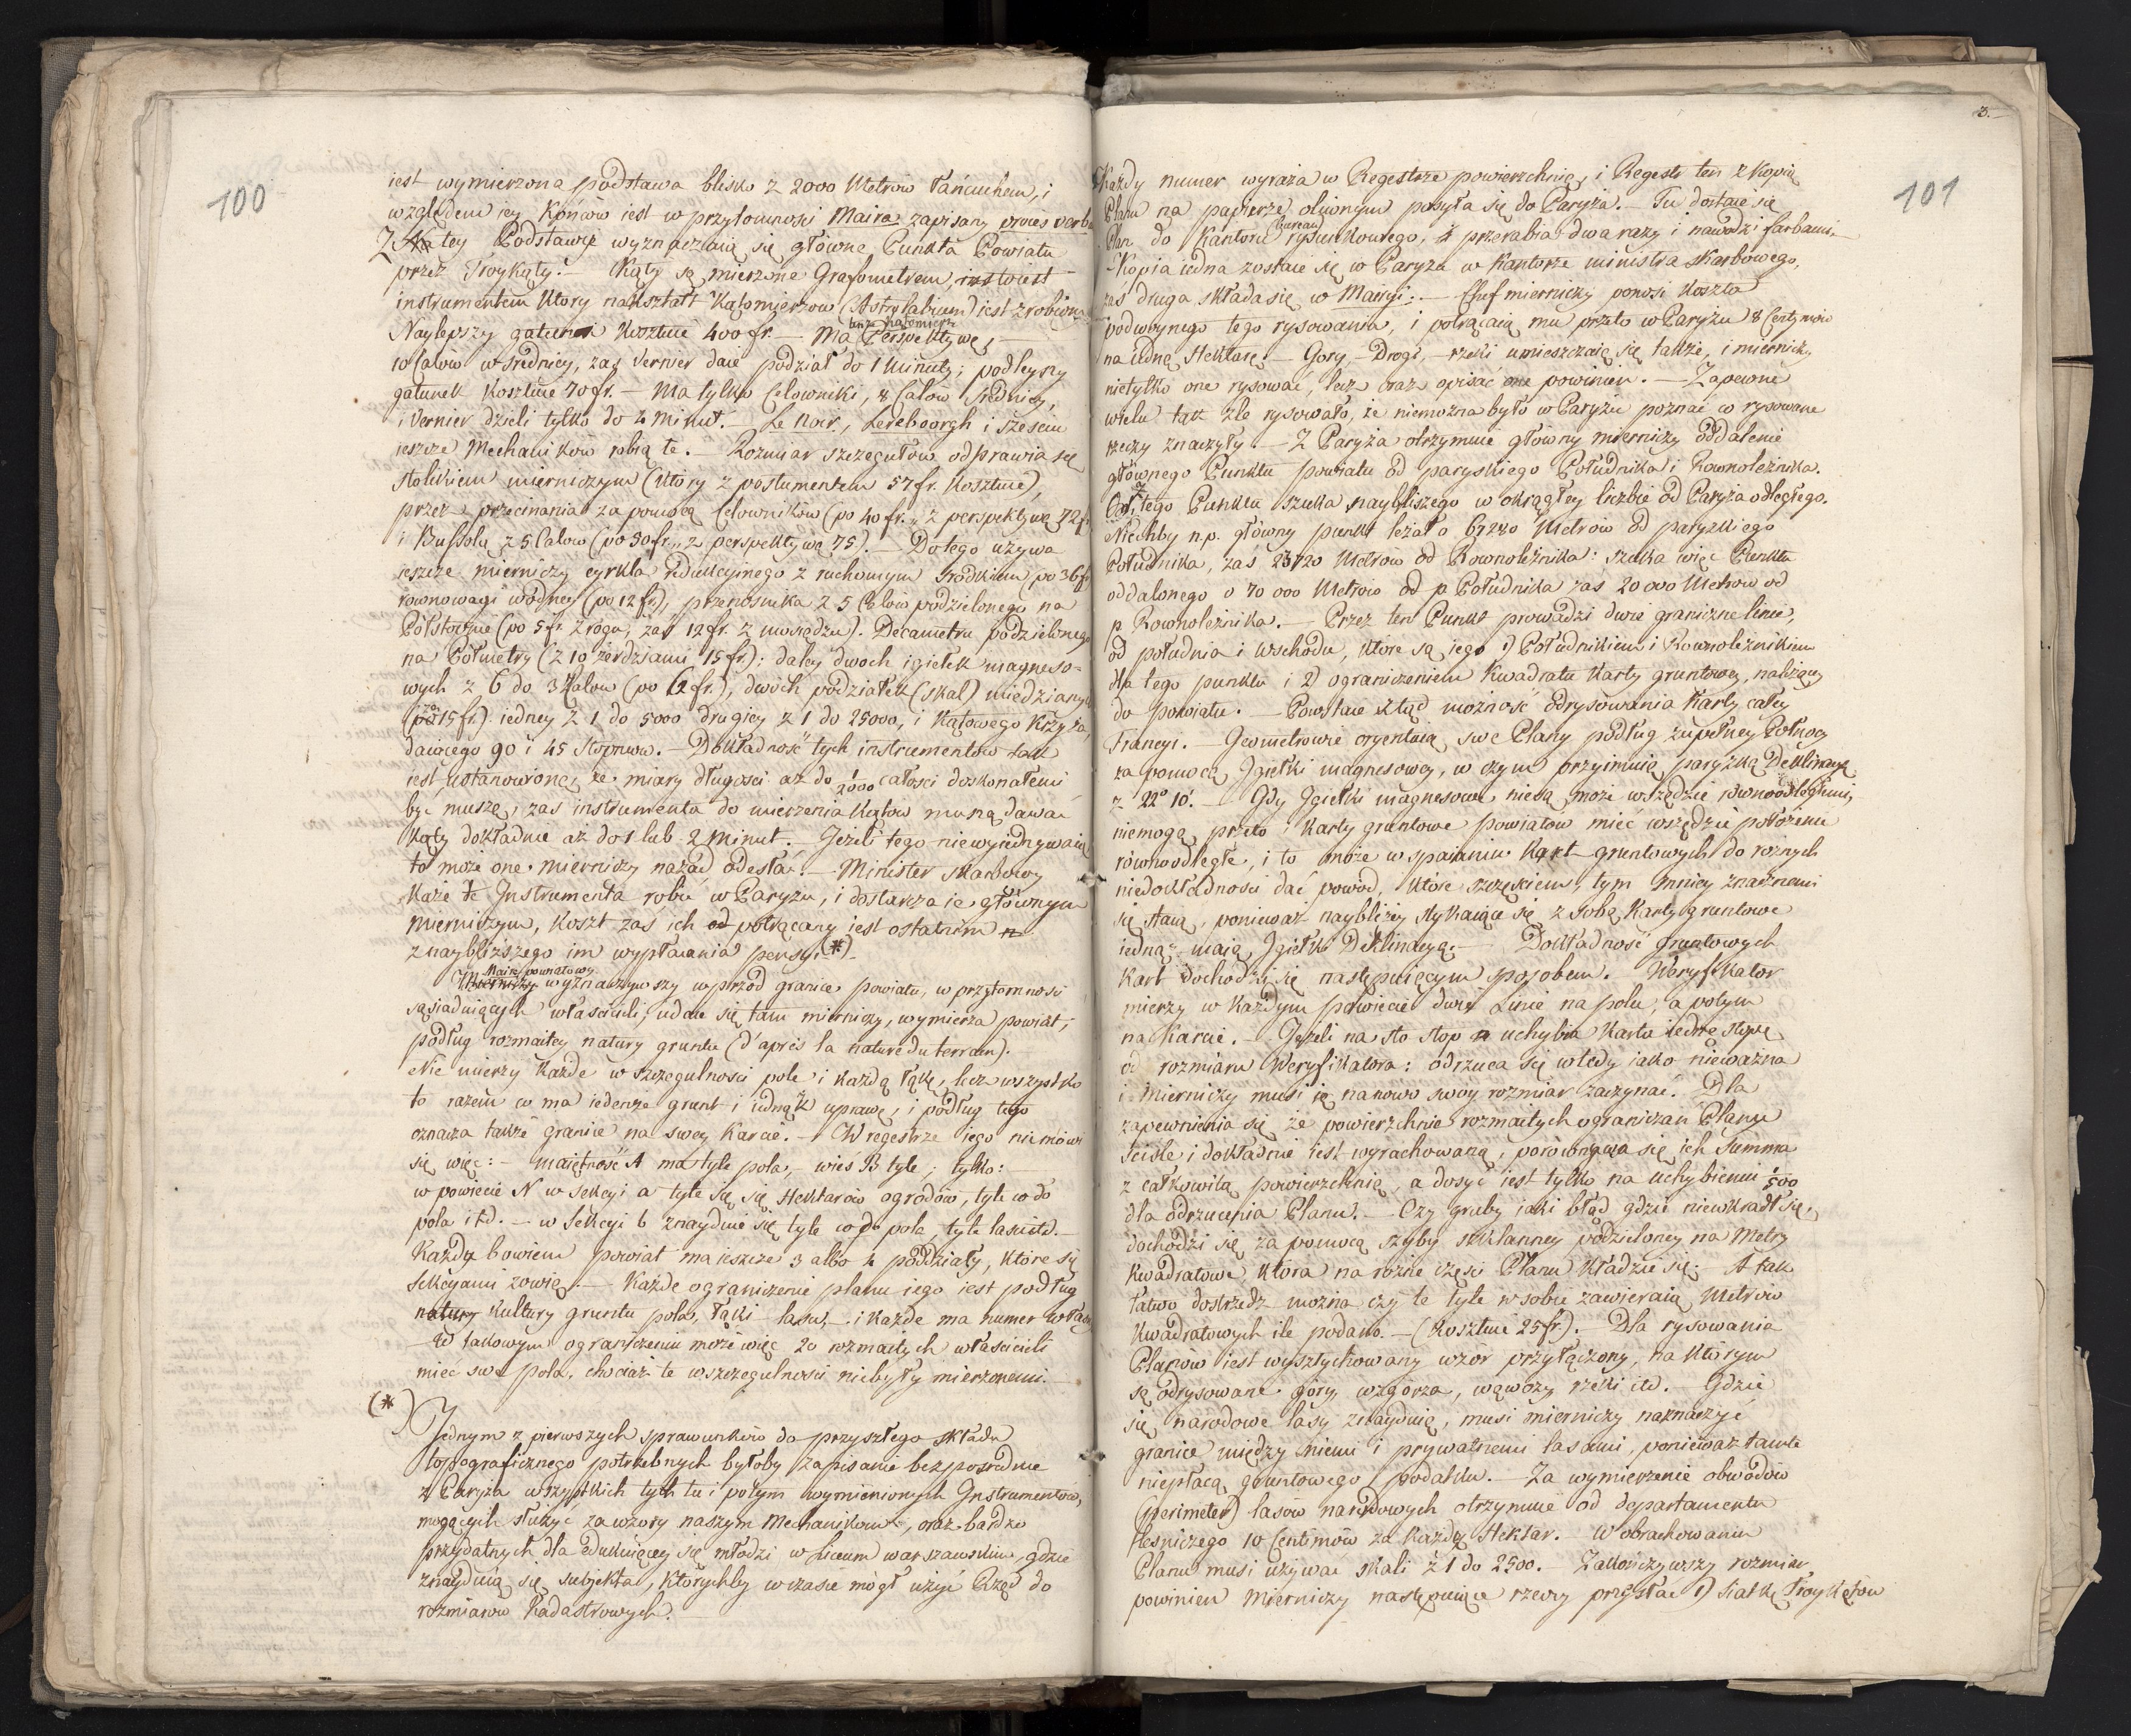 100
iest wymierzona podstawa blisko z 2000 Metrów łańcuchem, i
względem iey Końców iest w przytomnosci Maira zapisany proces verb
Z tey Podstawy wyznaczaią się główne Punkta Powiatu
przez Troykąty. — Kąty są mierzone Grafometrem, iest
instrumentem Ktory nakształt Kątomierzow (Astrolabium) iest zrobiony
Naylepszy gatunek Kosztuie 400 fr. — Ma Perspektywę,
10 Calów w średnicy, zaś Vernier daie podział do 1 Minuty; podleyszy
gatunek Kosztuie 70 fr. — Ma tylko Celowniki, 8 Calów Srednicy,
i Vernier dzieli tylko do 2 Minut. — Le Noir, Lereboorgh i sześciu
ieszcze Mechaników robią te. — Rozmiar szczegułów odprawia się
stolikiem mierniczym (Ktory z postumentem 57 fr. Kosztuie),
przez przecinania za pomocą Celowników (po 40 fr., z perspektywą 72 f
i Bussolą z 5 Calow (po 50 fr., z perspektywą 75). — Do tego używa
ieszcze mierniczy cyrkla redukcyinego z ruchomym srodkiem (po 36 f
rownowagi wodney (po 12 fr), przenosnika z 5 Calów podzielonego na
Półstopnie (po 5 fr. z rogu, zaś 12 fr. z mosiądzu). Decametru podzielonego
na Półmetry (z 10 żerdziami 15 fr.): daley dwoch igiełek magneso-
wych z 6 do 3 Calow (po 12 fr.), dwóch podziałek (skal) miedzianych
(po 15 fr.) iedney z 1 do 5000 drugiey z 1 do 25000, i Kątowego Krzyża,
daiącego 90 i 45 Stopniow. — Dokładność tych instrumentow tak
iest ustanowioną, że miary długosci aż do 1/2000 całosci doskonałemi
być muszą, zas instrumenta do mierzenia Kątow muszą dawać
Kąty dokładnie aż do 1 lub 2 Minut. Jeżeli tego niewyiednywaią
to może one mierniczy nazad odesłać. — Minister skarbowy
Każe te Instrumenta robić w Paryżu, i dostarcza ie głównym
mierniczym, Koszt zaś ich potrącany iest ostatnim
z naybliższego im wypłacania pensyi (*)
Maire powiatowy
Mierniczy wyznaczywszy wprzód granice powiatu, w przytomnosci
sąsiaduiących właścicieli, udaie się tam mierniczy, wymierza powiat,
podług rozmaitey natury gruntu (d'aprés la nature du terrain).
Nie mierzy Każde w szczegulnosci pole i Każdą łąkę, lecz wszystko
to razem co ma iedenże grunt i iednąż uprawę, i podług tego
oznacza także granice na swey Karcie. — W regestrze iego niemówi
się więc: — maiętność A ma tyle pola, — wieś B tyle; tylko:
w powiecie N w sekcyi a tyle są się Hektarów ogrodów, tyle co do
pola itd. — w Sekcyi b znayduie się tyle co do pola, tyle lasu itd. —
Każdy bowiem powiat ma ieszcze 3 albo 4 poddziały, Ktore się
sekcyami zowią. — Każde ograniczenie planu iego iest podług
natury Kultury gruntu pola, łąki lasu, — i Każde ma numer własny
— W takowym ograniczeniu może więc 20 rozmaitych właścicieli
miec swe pola, chociaż te w szczegulnosci niebyły mierzonemi. —
(*) Jednym z pierwszych sprawunków do przyszłego składu
topograficznego potrzebnych byłoby zapisanie bezposrednie
z Paryża wszystkich tych tu i potym wymienionych Instrumentów,
mogących służyć za wzory naszym Mechanikom, oraz bardzo
przydatnych dla edukuiącey się młodzi w Liceum warszawskim, gdzie
znayduią się subjekta, Ktorychby w czasie mógł użyć Rząd do
rozmiarów Kadastrowych. —
3.
101
Każdy numer wyraża w Regestrze powierzchnię, i Regestr ten z Kopią
Planu na papierze oliwnym posyła się do Paryża. — Tu dostaie się
bureau
Plan do Kantoru rysunkowego, przerabia dwa razy i nawodzi farbami. —
Kopia iedna zostaie się w Paryżu w Kantorze ministra skarbowego,
zaś druga składa się w Mairyi: — Chef mierniczy ponosi koszta
podwoynego tego rysowania, i potrącaią mu przeto w Paryżu 8 Centymów
na iedną Hektarę. — Gory, — Drogi, — rzeki umieszczaią się także, i mierniczy
nietylko one rysować, lecz oraz opisać one powinien. — Zapewne
wielu tak źle rysowało, że niemożna było w Paryżu poznać co rysowane
rzeczy znaczyły. — Z Paryża otrzymuie główny mierniczy oddalenie
głównego Punktu powiatu od paryskiego Południka i Rownoleżnika.
Od tego Punktu szuka naybliższego w okrągłey liczbie od Paryża odległego.
Niechby n.p. główny punkt leżał o 67240 Metrow od paryzkiego
Południka, zaś 23720 Metrów od Rownoleżnika: szuka więc Punktu
oddalonego o 70 000 Metrow od p. Południka zaś 20 000 Metrow od
p. Rownoleżnika. — Przez ten Punkt prowadzi dwie graniczne linie,
od południa i wschodu, Które są iego 1) Południkiem i Rownoleżnikiem
dla tego punktu i 2) ograniczeniem Kwadratu Karty gruntowey, należący
do powiatu. — Powstaie ztąd możność odrysowania Karty całey
Francyi. — Geometrowie oryentuią swe Plany podług zupełney Połnocy
za pomocą Igiełki magnesowey, w czym przyimuią paryzką Deklinacyą
z 22° 10'. — Gdy Igiełki magnesowe niesą może wszędzie rownoodległemi,
niemogą przeto Karty gruntowe powiatów mieć wszędzie położenie
równoodległe, i to może w spaianiu Kart gruntowych do rożnych
niedokładnosci dać powód, Które szczęsciem, tym mniey znacznemi
się staią, ponieważ naybliżey stykaiące się z sobą Karty gruntowe
iednąż maią Igiełki Deklinacyą. — Dokładność gruntowych
Kart dochodzi się następuiącym sposobem. Weryfikator
mierzy w Każdym powiecie dwie Linie na polu, a potym
na Karcie. — Jeżeli na sto stop uchybia Karta iedną stopę
od rozmiaru Weryfikatora: odrzuca się wtedy iako nieważna
i Mierniczy musi ią nanowo swoy rozmiar zaczynać. Dla
zapewnienia się że powierzchnie rozmaitych ograniczań Planu
ściśle i dokładnie iest wyrachowaną, porównywa się ich Summa
z całkowitą powierzchnią, a dosyć iest tylko na uchybieniu 1/500
dla odrzucenia Planu. — Czy gruby iaki błąd gdzie niewkradł się,
dochodzi się za pomocą szyby szklanney podzieloney na Metry
Kwadratowe, Która na rożne części Planu Kładzie się. — A tak
łatwo dostrzedz można czy te tyle w sobie zawieraią Metrów
Kwadratowych ile podano. — (Kosztuie 25 fr). — Dla rysowania
Planów iest wysztychowany wzór przyłączony, na Którym
są odrysowane góry, wzgórza, wąwozy, rzeki itd. — Gdzie
się narodowe lasy znayduią, musi mierniczy naznaczyć
granice między niemi i prywatnemi lasami, ponieważ tamte
niepłacą gruntowego podatku. — Za wymierzenie obwodów
(perimeter) lasów narodowych otrzymuie od departamentu
lesniczego 10 Centimów za Każdy Hektar. — W obrachowaniu
Planu musi używać skali z 1 do 2500. — Zakończywszy rozmiar
powinien Mierniczy następuiące rzeczy przysłać 1) Siatkę Troykątow